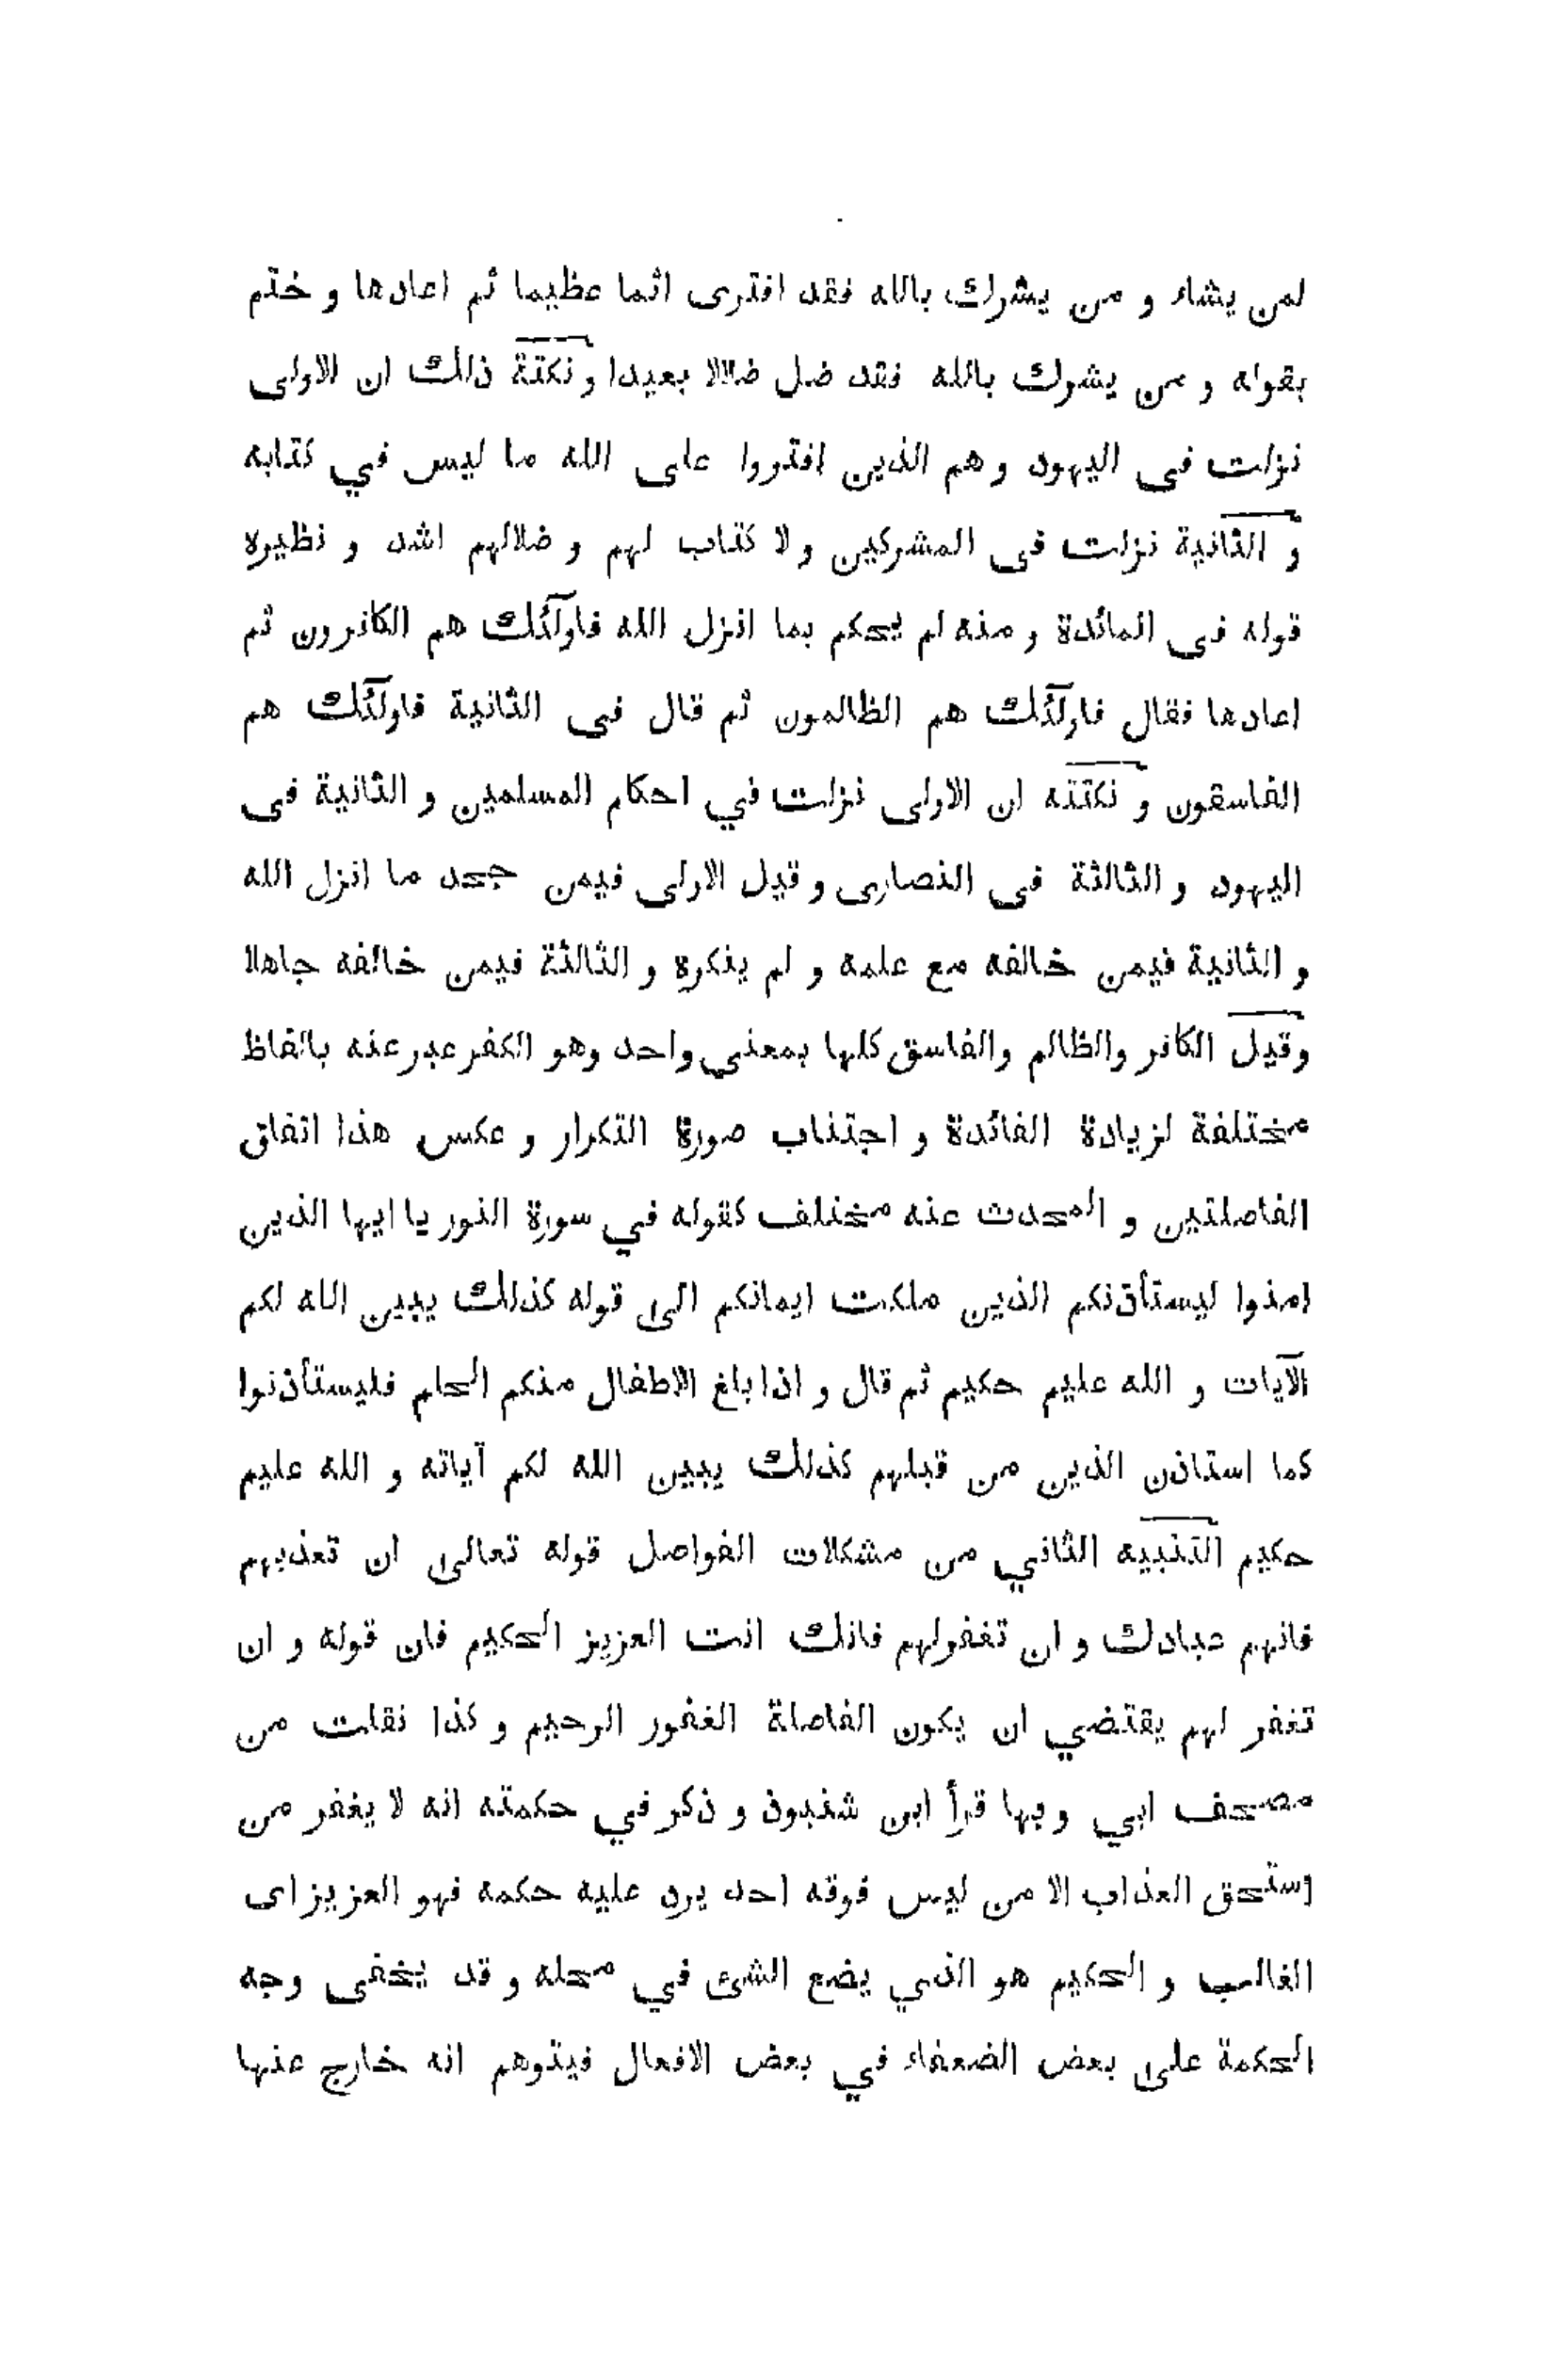 لمن يشاء و من يشرك بالله فقد افترى اثما عظيما ثم اعادها و ختم
بقوله و من يشرك بالله فقد ضل ضلالا بعيدا و نكتة ذلك ان الاولى
نزلت فى اليهود وهم الذين افتروا على الله ما ليس في كتابه
و الثانية نزلت فى المشركين ولا كتاب لهم و ضلالهم اشد و نظيره
قوله فى المائدة و منه لم يحكم بما انزل الله فاولٓئك هم الكافرون ثم
اعادها فقال فاولٓئك هم الظالمون ثم قال فى الثانية فاولٓئك هم
الفاسقون و نكتته ان الاولى نزلت في احكام المسلمين و الثانية فى
اليهود و الثالثة فى النصارى و قيل الاولى فيمن جحد ما انزل الله
و الثانية فيمن خالفه مع علمه و لم ينكره و الثالثة فيمن خالفه جاهلا
وقيل الكافر والظالم والفاسق كلها بمعنى واحد وهو الكفر عبر عنه بالفاظ
مختلفة لزيادة الفائدة و اجتناب صورة التكرار و عكس هذا اتفاق
الفاصلتين و المحدث عنه مختلف كقوله في سورة النور يا ايها الذين
امنوا ليستأذنكم الذين ملكت ايمانكم الى قوله كذلك يبين الله لكم
الآيات و الله عليم حكيم ثم قال و اذا بلغ الاطفال منكم الحلم فليستأذنوا
كما استاذن الذين من قبلهم كذلك يبين الله لكم آياته و الله عليم
حكيم التنبيه الثاني من مشكلات الفواصل قوله تعالى ان تعذبهم
فانهم عبادك و ان تغفرلهم فانك انت العزيز الحكيم فان قوله و ان
تغفر لهم يقتضي ان يكون الفاصلة الغفور الرحيم و كذا نقلت من
مصحف ابي وبها قرأ ابن شنبوذ و ذكر في حكمته انه لا يغفر من
استحق العذاب الا من ليس فوقه احد يرد عليه حكمه فهو العزيز اى
الغالب و الحكيم هو الذي يضع الشئ في محله و قد يخفى وجه
الحكمة على بعض الضعفاء في بعض الافعال فيتوهم انه خارج عنها